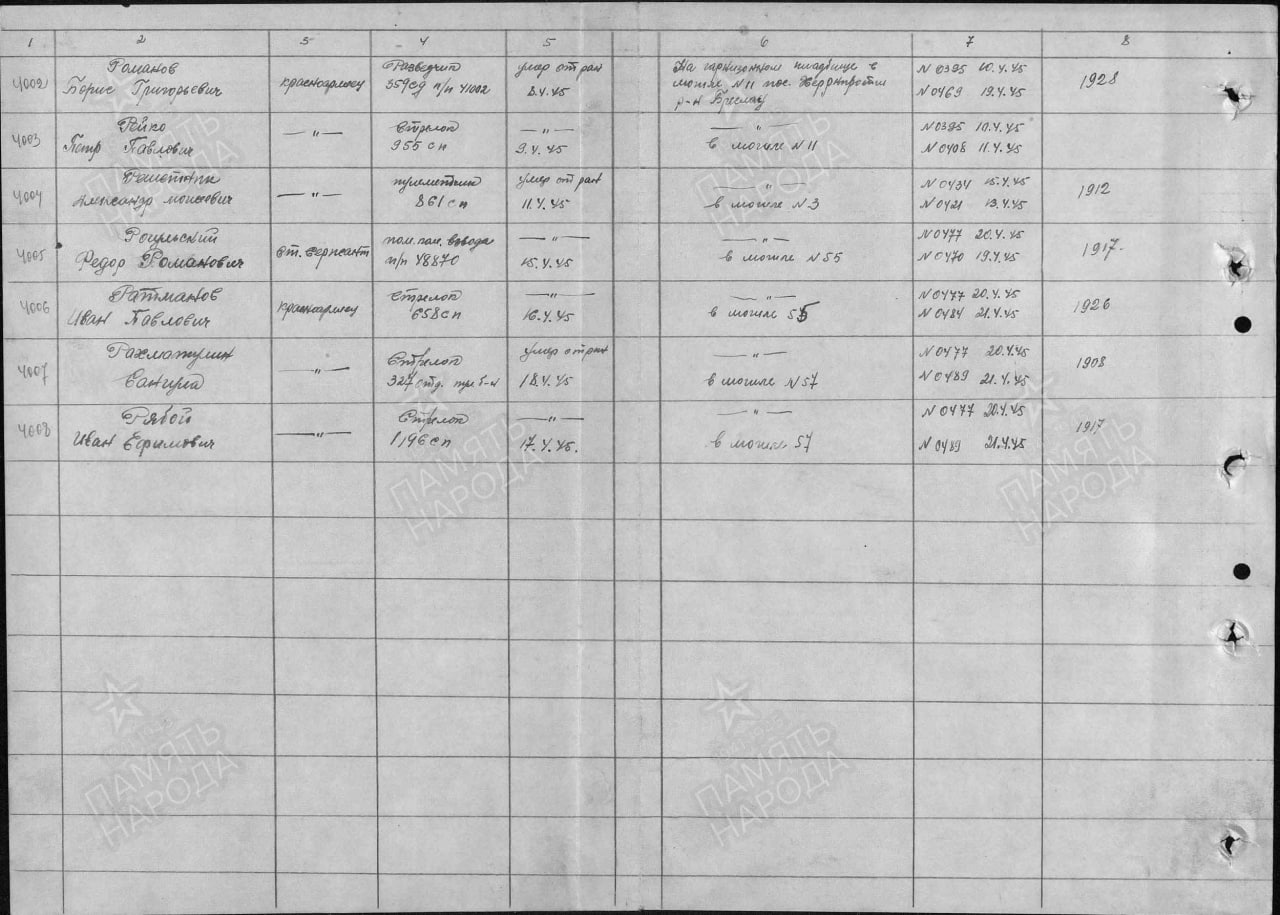 1 2 3 4 5 6 7 8
4002 Романов Борис Григорьевич красноармеец Разведчик 359 сд п/п 41002 умер от ран 8.4.45 На гарнизонном кладбище в могиле N 11 пос. р-н Бреслау N 0395 10.4.45 N 0469 19.4.45 1928
4003 Рейко Петр Павлович —"— Стрелок 955 сп —"— 9.4.45 —"— в могиле N 11 N 0395 10.4.45 N 0408 11.4.45
4004 Александр Моисеович —"— пулеметчик 861 сп умер от ран 11.4.45 —"— в могиле N 3 N 0434 15.4.45 N 0421 13.4.45 1912
4005 Рогульский Федор Романович ст. сержант пом. ком. взвода п/п 48870 —"— 15.4.45 —"— в могиле N 55 N 0477 20.4.45 N 0470 19.4.45 1917
4006 Ратманов Иван Павлович красноармеец Стрелок 658 сп —"— 16.4.45 —"— в могиле 55 N 0477 20.4.45 N 0484 21.4.45 1926
4007 Рахматулин —"— Стрелок 327 отд. б-н умер от ран 18.4.45 —"— в могиле N 57 N 0477 20.4.45 N 0489 21.4.45 1908
4008 Рябой Иван Ефимович —"— Стрелок 1196 сп —"— 17.4.45. —"— в могиле 57 N 0477 20.4.45 N 0489 21.4.45 1917
ПАМЯТЬ
НАРОДА
ПАМЯТЬ
НАРОДА
ПАМЯТЬ
НАРОДА
ПАМЯТЬ
НАРОДА